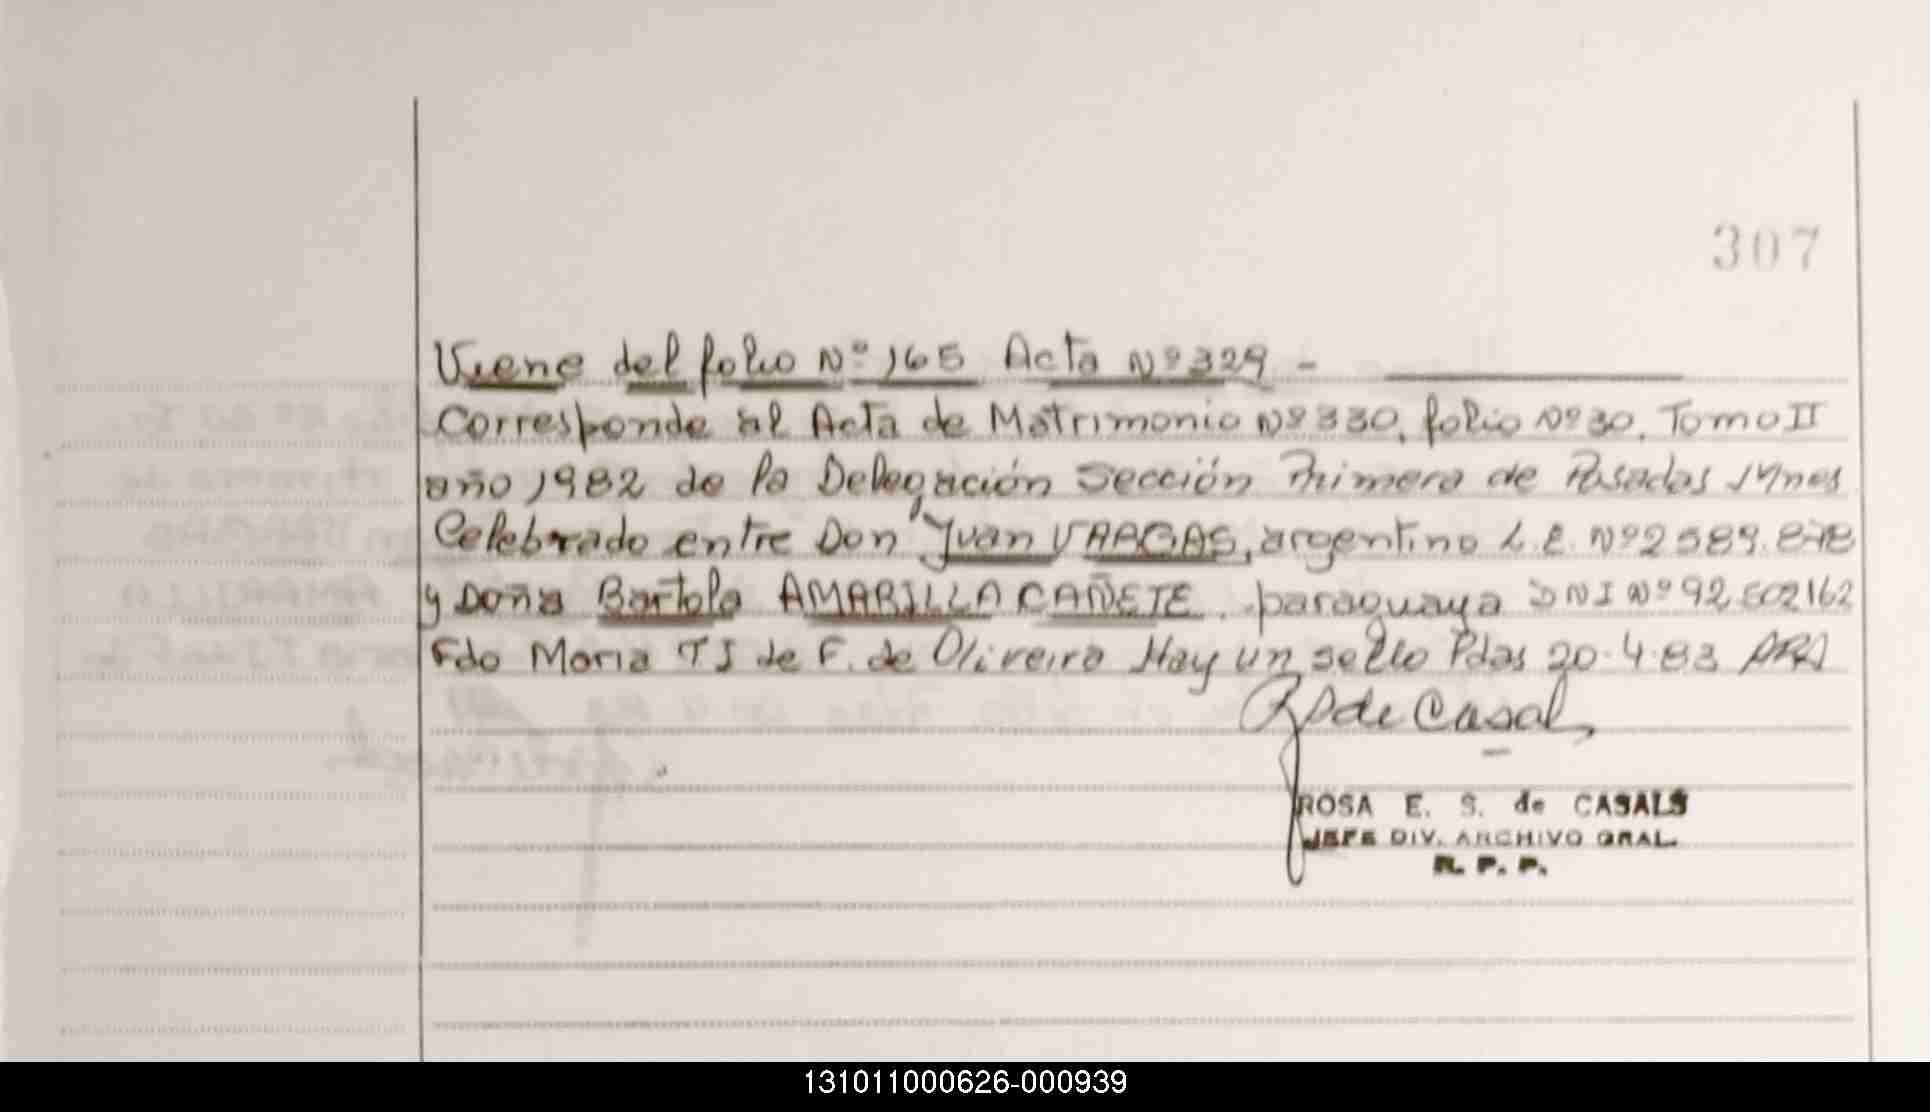 307
Viene del folio Nº 165 Acta Nº 329 -
Corresponde al Acta de Matrimonio Nº 330, folio Nº 30. Tomo II
año 1982 de la Delegación Sección Primera de Posadas Mnes
Celebrado entre Don Juan VARGAS, argentino L.E. Nº 2589.878
y Doña Bartola AMARILLA CAÑETE. paraguaya DNI Nº 92.502162
Fdo Maria T J de F. de Oliveira Hay un sello Pdas 20.4.83
de Casal
ROSA E. S. de CASALS
JEFE DIV. ARCHIVO GRAL.
R. P. P.
131011000626-000939